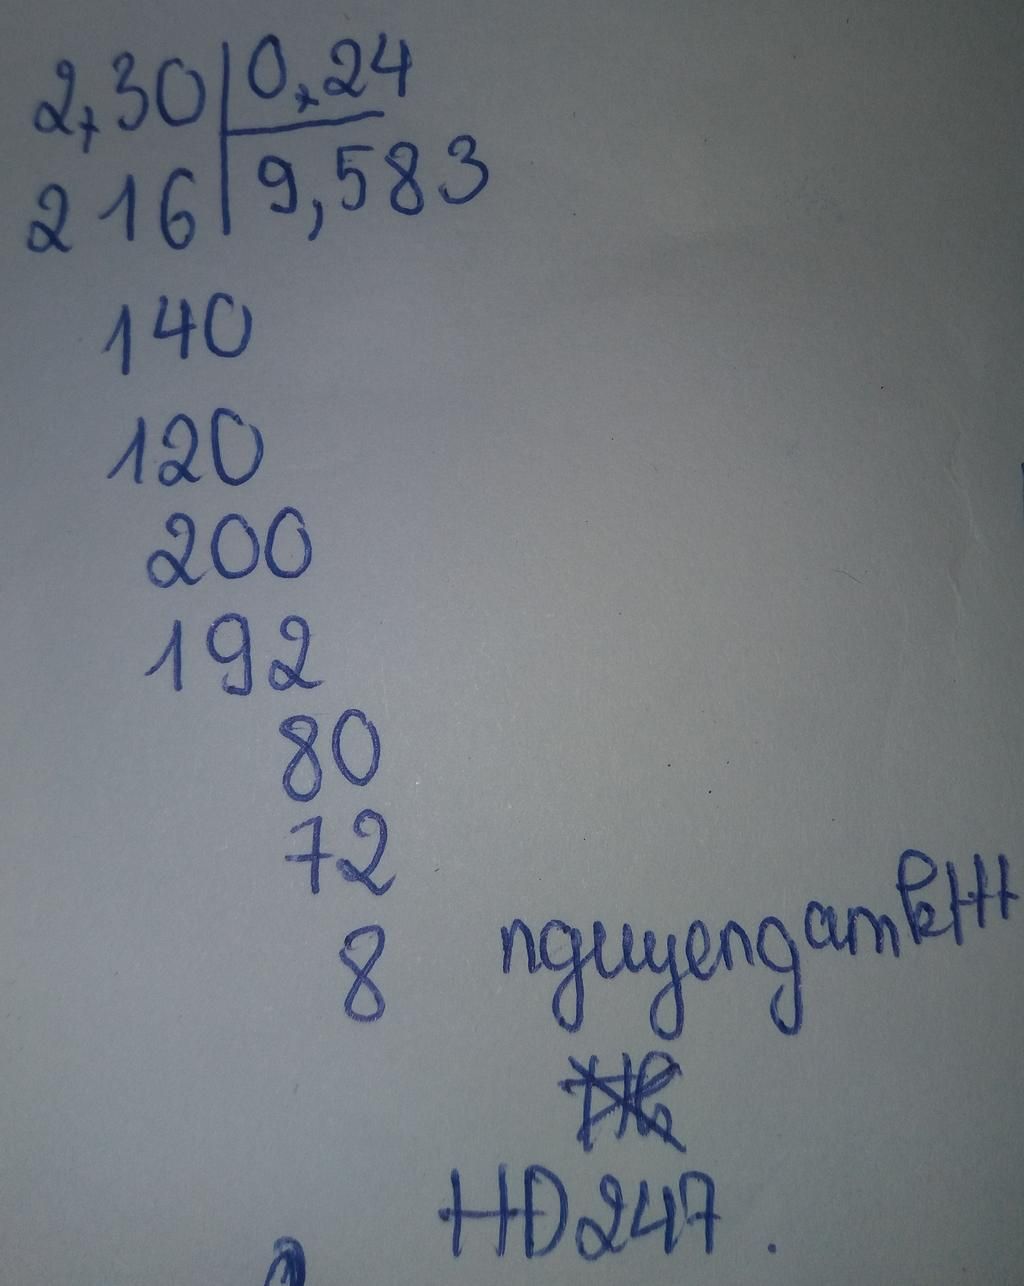 2,30 0,24
216 9,583
140
120
200
192
80
72
8
nguyengamkHt
HD247.